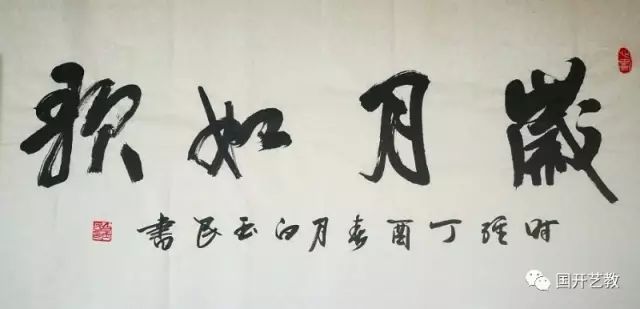 歲月如歌
时在丁酉春月白玉民書
国开艺教